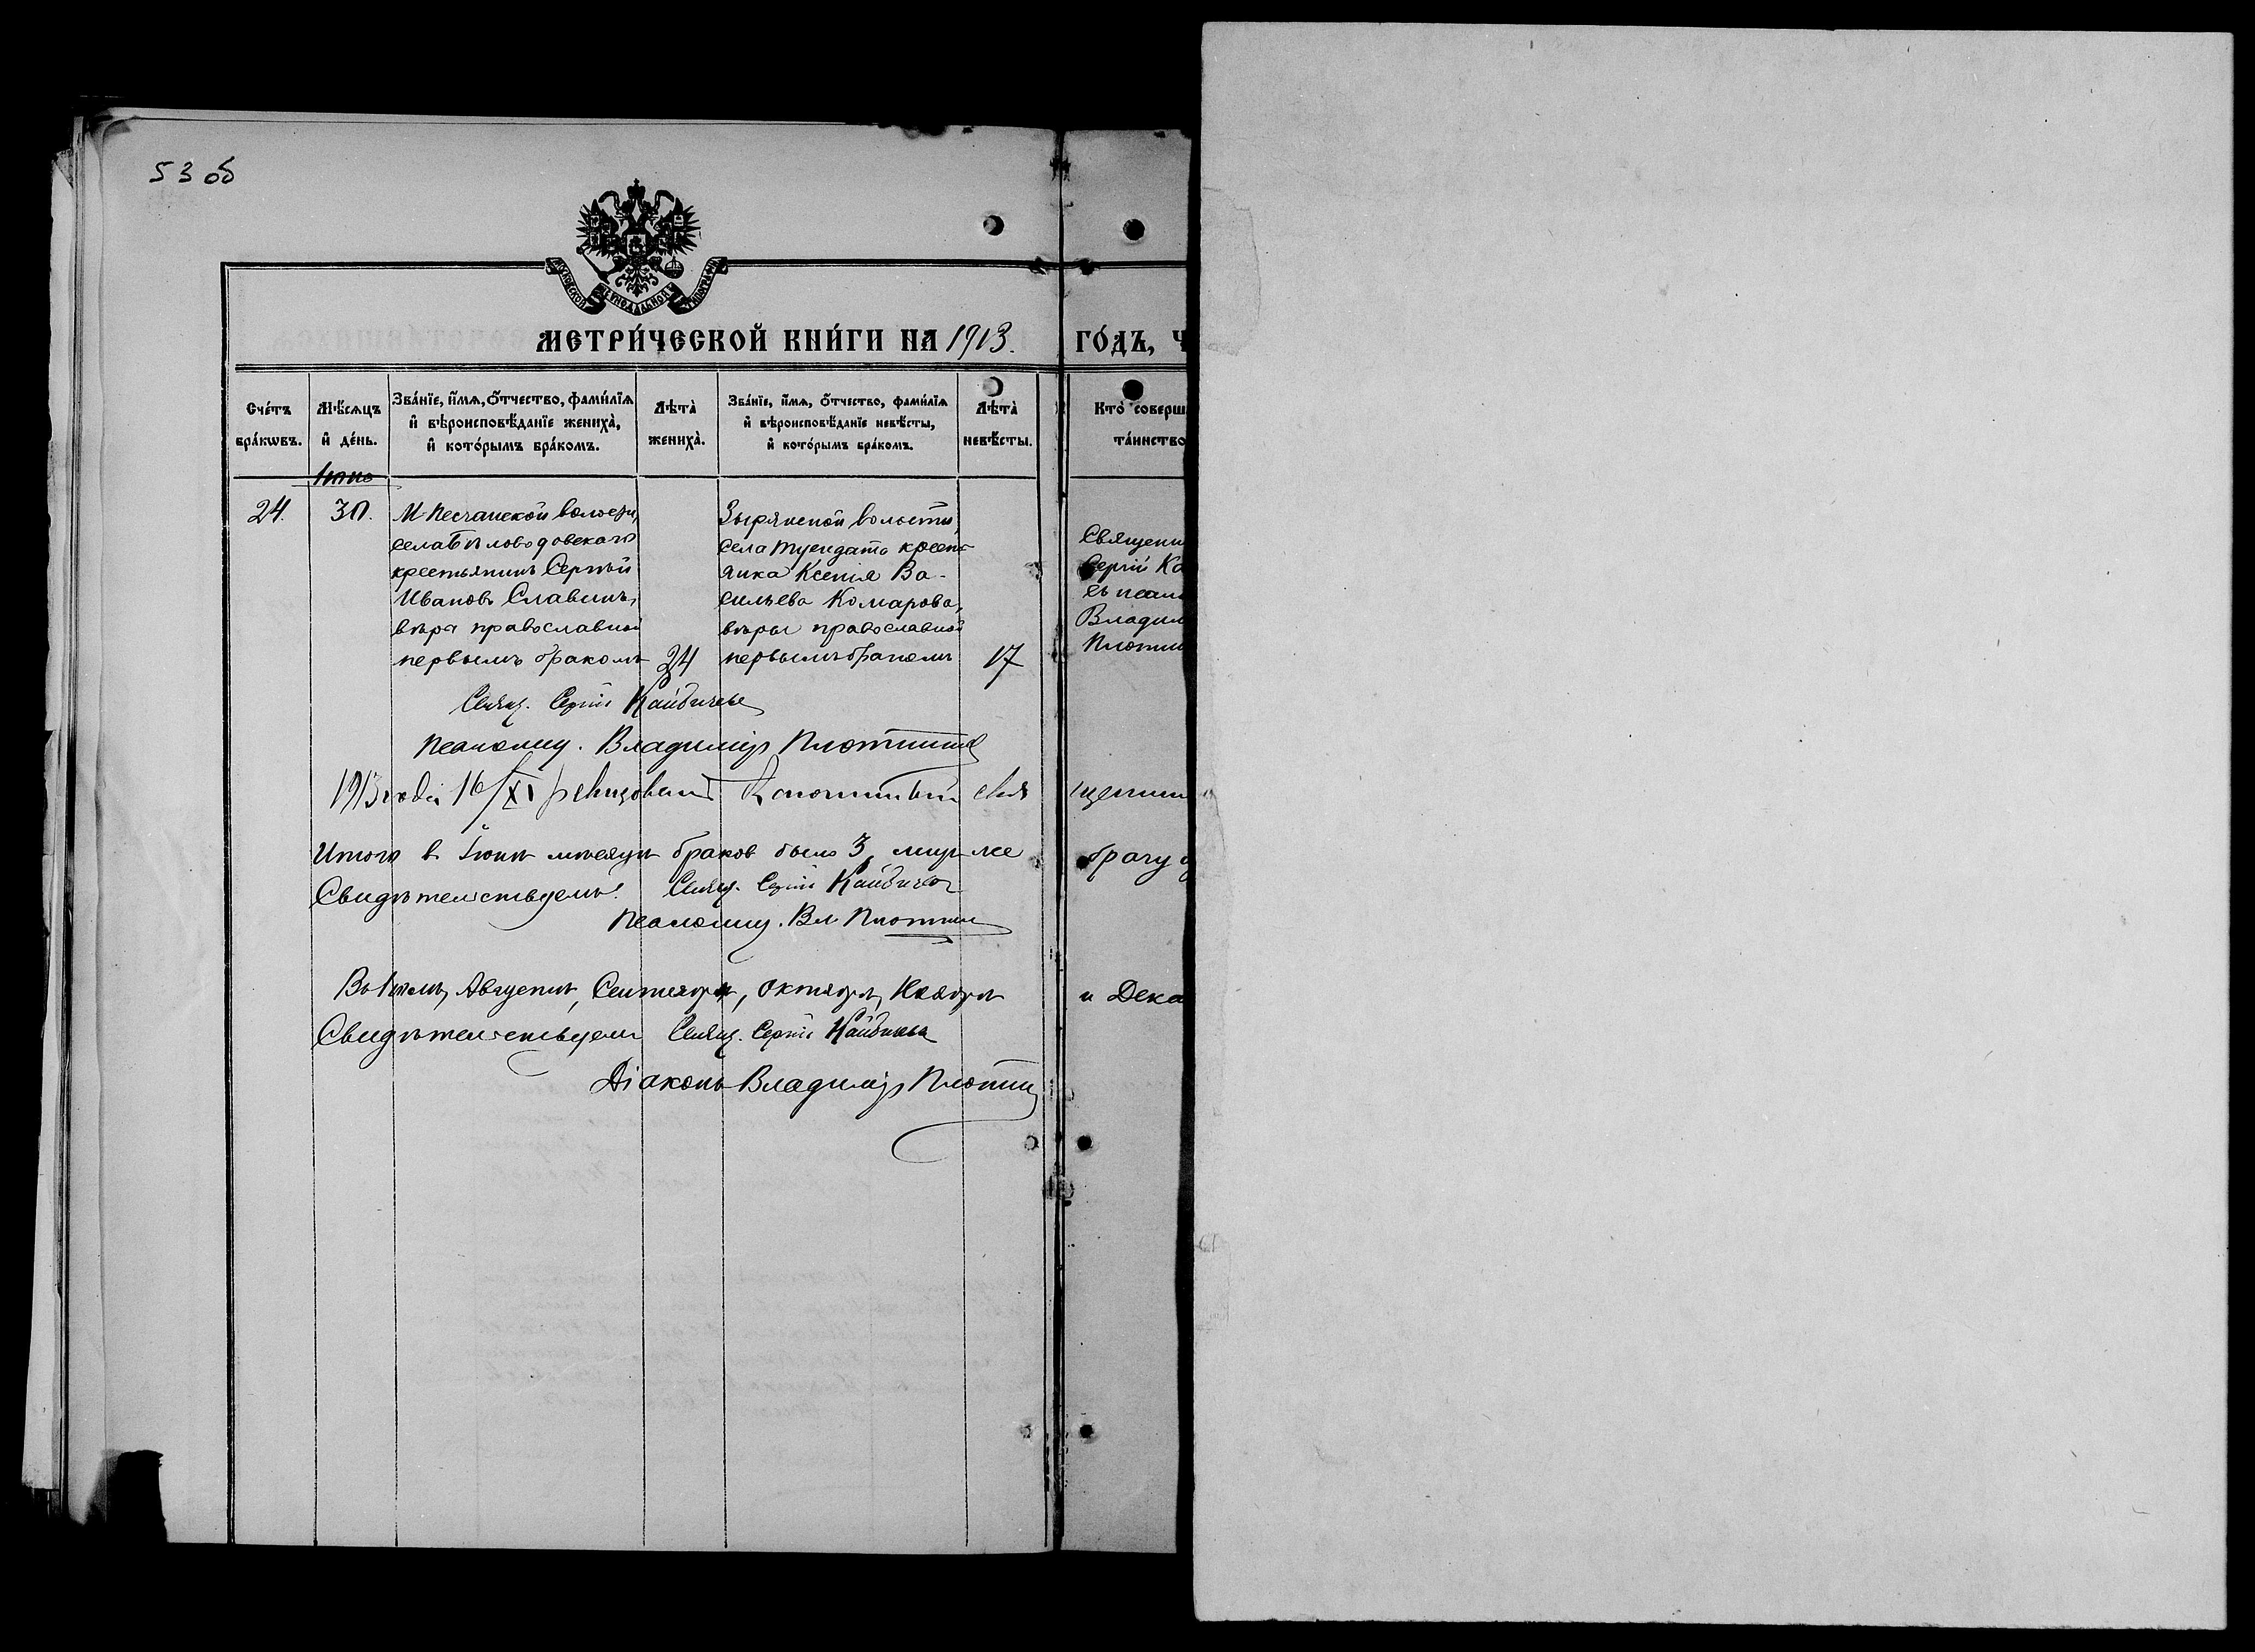 53 об
МОСКОВСКОЙ СѴНОДАЛЬНОЙ ТИПОГРАФІИ
МЕТРИ́ЧЕСКОЙ КНИ́ГИ НА 1913. ГО́ДЪ, Ч
Сче́тъ бра́кѡвъ.
Мѣ́сѧцъ и҆ де́нь.
Зва́нїе, и҆́мѧ, ѻ҆́тчество, фами́лїѧ
и҆ вѣроисповѣ́данїе женихà,
и҆ кото́рымъ бра́комъ.
Лѣтà женихà.
Зва́нїе, и҆́мѧ, ѻ҆́тчество, фами́лїѧ
и҆ вѣроисповѣ́данїе невѣ́сты,
и҆ кото́рымъ бра́комъ.
Лѣтà невѣ́сты.
Кто̀ соверш
та́инство
24.
30.
М Песчанской волости,
села Бѣловодовскаго
крестьянинъ Сергѣй
Ивановъ Славинъ,
вѣра православной
первымъ бракомъ
24
Зырянской волости,
села Туендата кресть
янка Ксенія Ва-
сильева Комарова,
вѣры православной
первымъ бракомъ
17
Священн
Сергій Ка
съ псал
Владим
Плотни
Свящ. Сергій Кайбичевъ
Псаломщ. Владиміръ Плотни
1913 года 16/XI ревизовалъ свя щенни
Итого в Іюнѣ мѣсяцѣ браков было 3, брачу
Свидѣтельствуемъ: Свящ. Сергій Кайбичев
Псаломщ. Вл Плотни
Въ Іюлѣ, Августѣ, Сентябрѣ, Октябрѣ, Ноябрѣ и Дека
Свидѣтельствуемъ Свящ. Сергій Кайбичевъ
Діаконъ Владиміръ Плотни